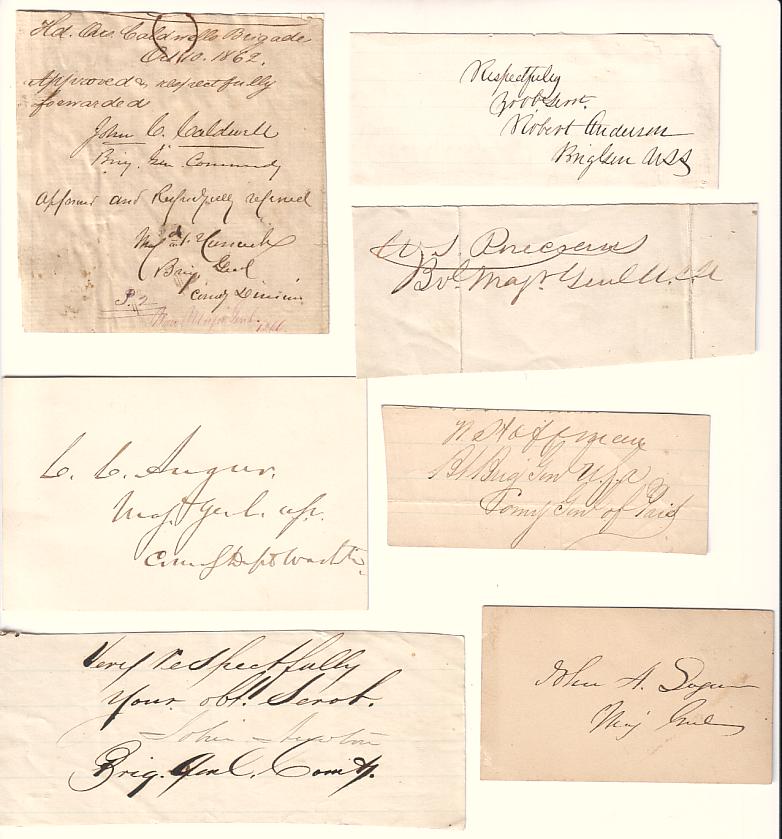 Hd. Qrs. Caldwells Brigade
Oct 10. 1862.
Approved & respectfully
forwarded
John C. Caldwell
Brig. Gen. Commdg
approved and Respectfully
Brig Genl
Comdg Division
P. 2
Respectfully
Yr ob Servt.
Robert Anderson
Brig Gen USA
Bvt. Majr. Genl U.S.A
C. C. Augur.
Maj. Genl.
Comdg Dept Washtn.
W Hoffman
Bt Brig Gen USA
Comy Gen of Pris
Very respectfully
Your obt. Servt.
John Newton
Brig. Genl. Comdg.
John A. Logan
Maj Genl